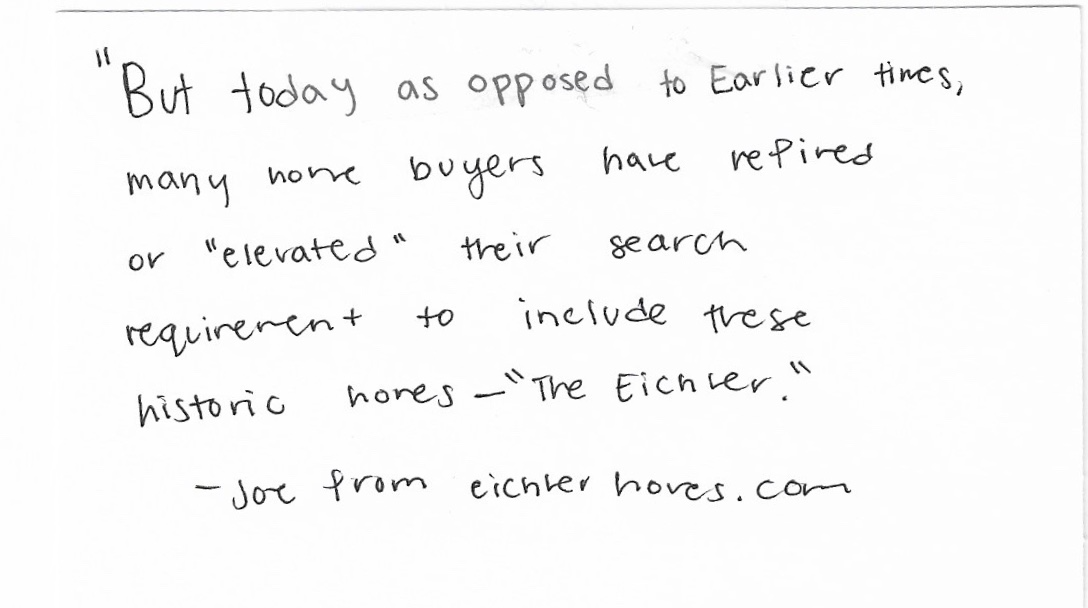 "But today as opposed to Earlier times,
many home buyers have refined
or "elevated" their search
requirement to include these
historic homes – "The Eichler."
– Joe from eichlerhomes.com